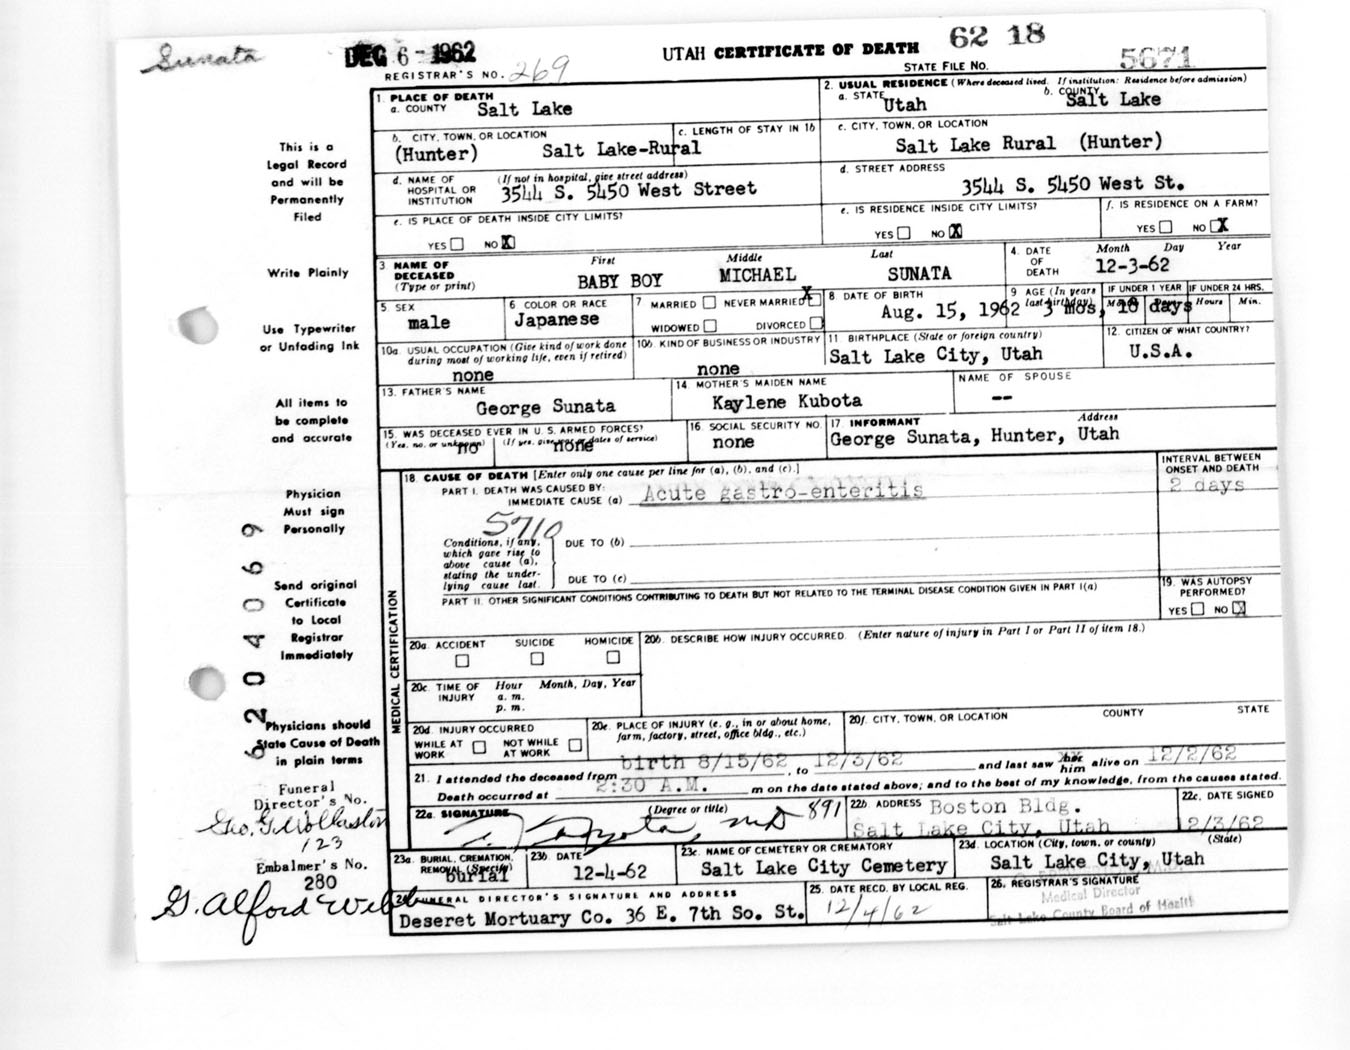 Sunata
DEC 6 - 1962
UTAH CERTIFICATE OF DEATH 62 18
REGISTRAR'S NO. 269
STATE FILE NO. 5671
1. PLACE OF DEATH
a. COUNTY Salt Lake
2. USUAL RESIDENCE (Where deceased lived. If institution: Residence before admission)
a. STATE Utah b. COUNTY Salt Lake
b. CITY, TOWN, OR LOCATION
(Hunter) Salt Lake-Rural
c. LENGTH OF STAY IN 1b
c. CITY, TOWN, OR LOCATION
Salt Lake Rural (Hunter)
d. NAME OF HOSPITAL OR INSTITUTION (If not in hospital, give street address)
3544 S. 5450 West Street
d. STREET ADDRESS
3544 S. 5450 West St.
e. IS PLACE OF DEATH INSIDE CITY LIMITS?
YES NO X
e. IS RESIDENCE INSIDE CITY LIMITS?
YES NO X
f. IS RESIDENCE ON A FARM?
YES NO X
3. NAME OF DECEASED (Type or print)
First Middle Last
BABY BOY MICHAEL SUNATA
4. DATE OF DEATH Month Day Year
12-3-62
5. SEX
male
6. COLOR OR RACE
Japanese
7. MARRIED NEVER MARRIED X
WIDOWED DIVORCED
8. DATE OF BIRTH
Aug. 15, 1962
9. AGE (In years last birthday) IF UNDER 1 YEAR IF UNDER 24 HRS.
Hours Min.
3 mos, 18 days
10a. USUAL OCCUPATION (Give kind of work done during most of working life, even if retired)
none
10b. KIND OF BUSINESS OR INDUSTRY
none
11. BIRTHPLACE (State or foreign country)
Salt Lake City, Utah
12. CITIZEN OF WHAT COUNTRY?
U.S.A.
13. FATHER'S NAME
George Sunata
14. MOTHER'S MAIDEN NAME
Kaylene Kubota
NAME OF SPOUSE
--
15. WAS DECEASED EVER IN U. S. ARMED FORCES?
(Yes, no, or unknown) (If yes, give war or dates of service)
no none
16. SOCIAL SECURITY NO.
none
17. INFORMANT Address
George Sunata, Hunter, Utah
18. CAUSE OF DEATH [Enter only one cause per line for (a), (b), and (c).]
INTERVAL BETWEEN ONSET AND DEATH
PART I. DEATH WAS CAUSED BY:
IMMEDIATE CAUSE (a) Acute gastro-enteritis
2 days
5710
Conditions, if any, which gave rise to above cause (a), stating the underlying cause last.
DUE TO (b)
DUE TO (c)
PART II. OTHER SIGNIFICANT CONDITIONS CONTRIBUTING TO DEATH BUT NOT RELATED TO THE TERMINAL DISEASE CONDITION GIVEN IN PART I(a)
19. WAS AUTOPSY PERFORMED?
YES NO X
MEDICAL CERTIFICATION
20a. ACCIDENT SUICIDE HOMICIDE
20b. DESCRIBE HOW INJURY OCCURRED. (Enter nature of injury in Part I or Part II of item 18.)
20c. TIME OF INJURY Hour Month, Day, Year
a. m.
p. m.
20d. INJURY OCCURRED
WHILE AT WORK NOT WHILE AT WORK
20e. PLACE OF INJURY (e. g., in or about home, farm, factory, street, office bldg., etc.)
20f. CITY, TOWN, OR LOCATION COUNTY STATE
21. I attended the deceased from birth 8/15/62, to 12/3/62 and last saw him alive on 12/2/62
Death occurred at 2:30 A.M. m on the date stated above; and to the best of my knowledge, from the causes stated.
22a. SIGNATURE (Degree or title)
MD 891
22b. ADDRESS Boston Bldg.
Salt Lake City, Utah
22c. DATE SIGNED
12/3/62
23a. BURIAL, CREMATION, REMOVAL (Specify)
burial
23b. DATE
12-4-62
23c. NAME OF CEMETERY OR CREMATORY
Salt Lake City Cemetery
23d. LOCATION (City, town, or county) (State)
Salt Lake City, Utah
24. FUNERAL DIRECTOR'S SIGNATURE AND ADDRESS
Deseret Mortuary Co. 36 E. 7th So. St.
25. DATE RECD. BY LOCAL REG.
12/4/62
26. REGISTRAR'S SIGNATURE
Medical Director
Salt Lake County Board of Health
This is a
Legal Record
and will be
Permanently
Filed
Write Plainly
Use Typewriter
or Unfading Ink
All items to
be complete
and accurate
Physician
Must sign
Personally
Send original
Certificate
to Local
Registrar
Immediately
Physicians should
State Cause of Death
in plain terms
6204069
Funeral
Director's No.
Geo. G. Wollaston
123
Embalmer's No.
280
G. Alford Webb